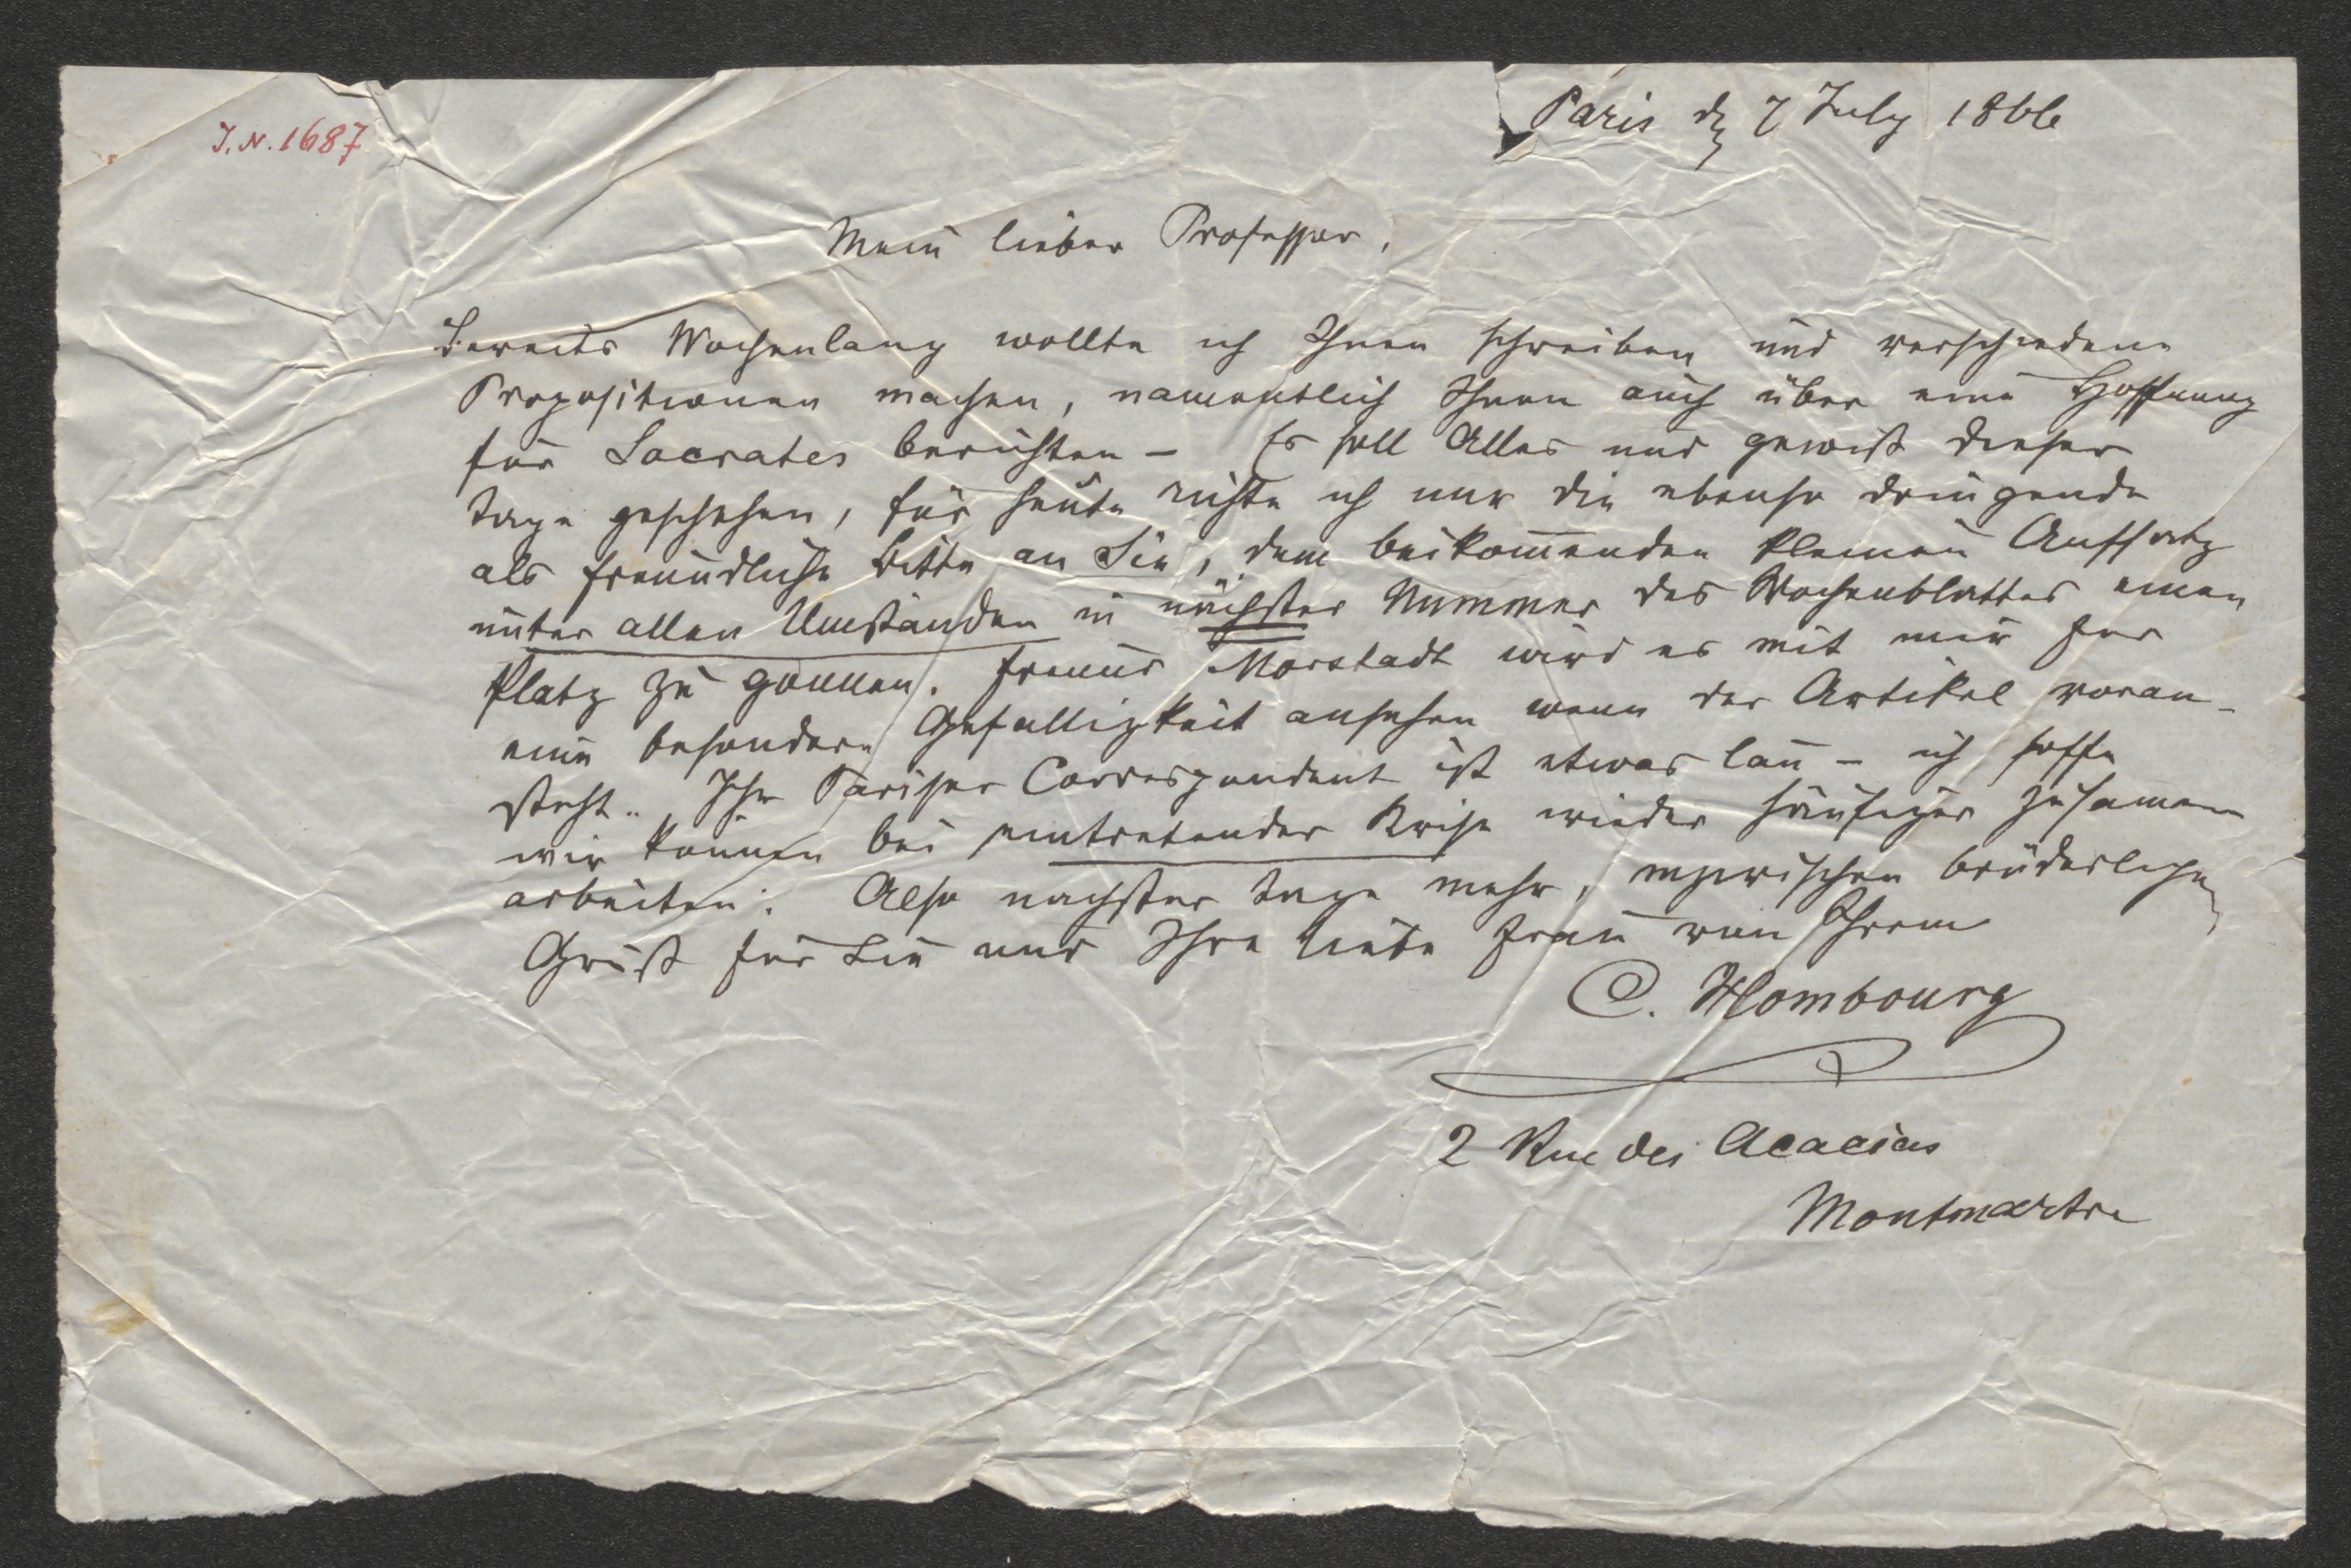 J. N. 1687
Paris d 7 July 1866
Mein lieber Professor,
Bereits Wochenlang wollte ich Ihnen schreiben und verschiedene
Propositionen machen, namentlich Ihnen auch über eine Hoffnung
für Socrates berichten – Es soll Alles und gewiß dieser
Tage geschehen, für heute richte ich nur die ebenso dringende
als freundliche Bitte an Sie, dem beikom̅enden kleinen Aufsatz
unter allen Umständen in nächster Nummer des Wochenblattes einen
Platz zu gönnen. Freund Morstadt wird es mit mir für
eine besondere Gefälligkeit ansehen wenn der Artikel voran-
steht. Ihr Pariser Correspondent ist etwas lau – ich hoffe
wir können bei eintretender Krise wieder häufiger zusamen
arbeiten. Also nächster Tage mehr, inzwischen brüderlichen
Gruß für Sie und Ihre liebe Frau von Ihrem
C. Hombourg
2 Rue des Acacias
Montmartre